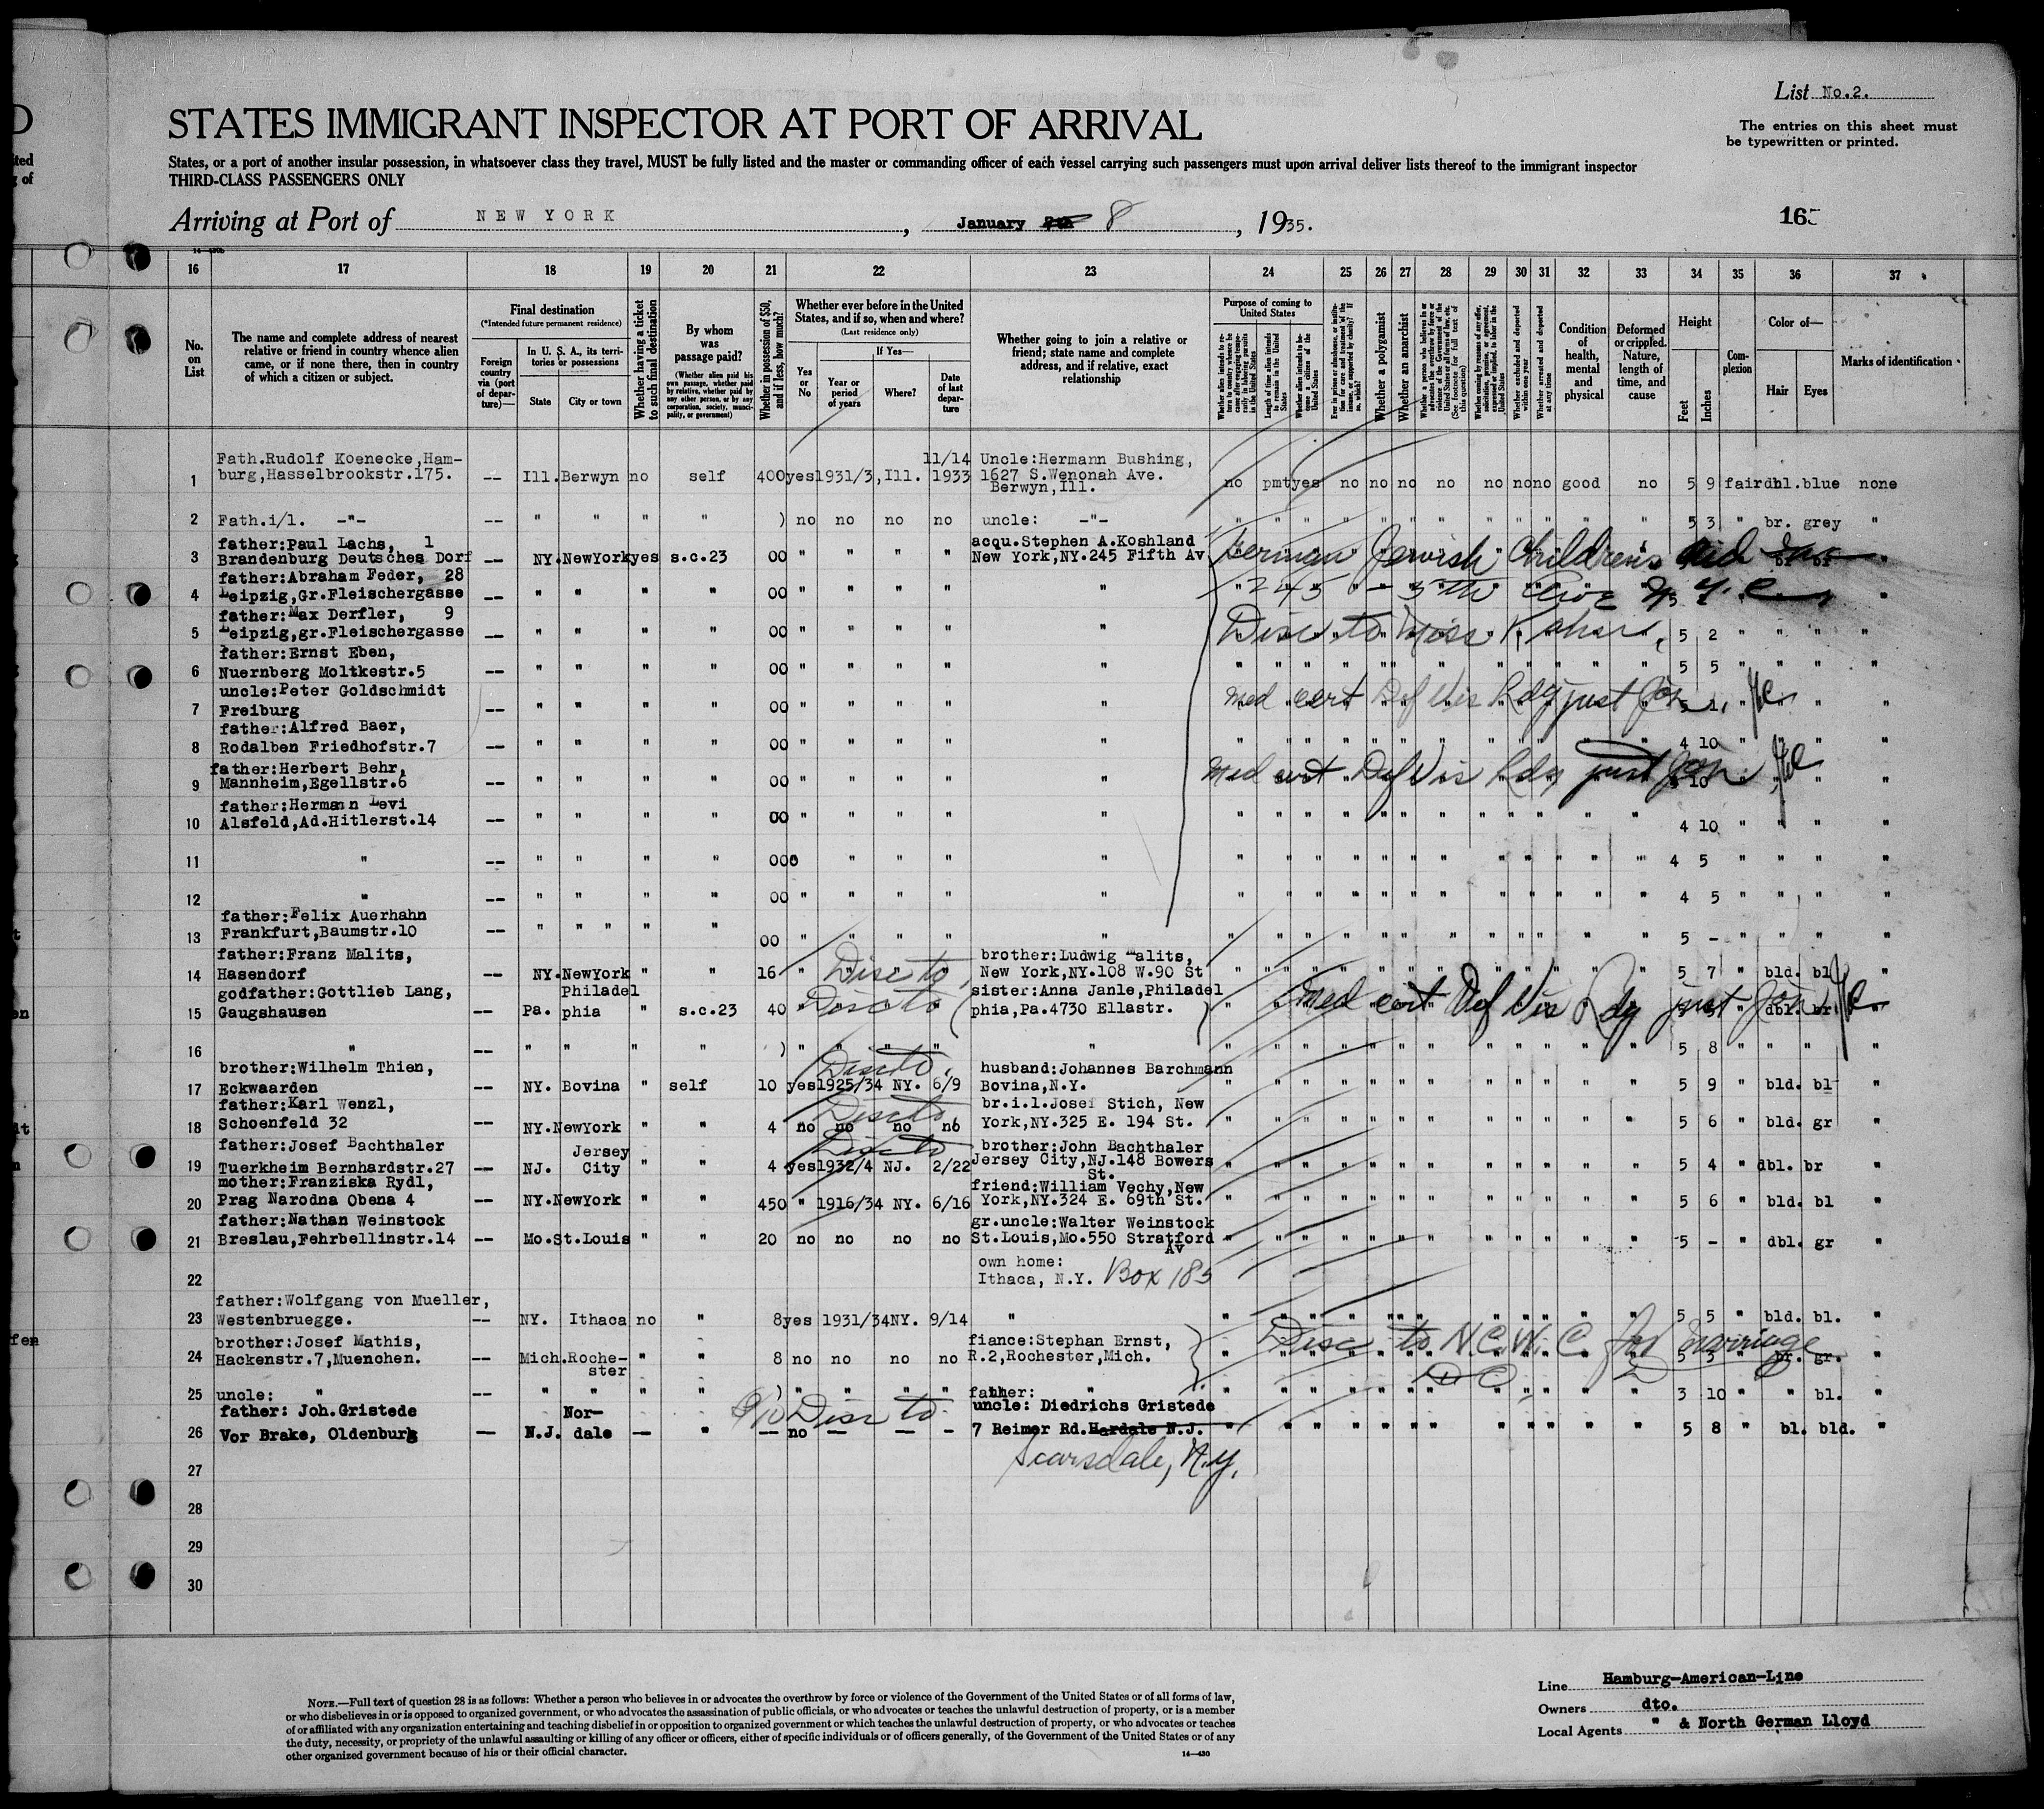 List No.2.
STATES IMMIGRANT INSPECTOR AT PORT OF ARRIVAL
The entries on this sheet must
be typewritten or printed.
States, or a port of another insular possession, in whatsoever class they travel, MUST be fully listed and the master or commanding officer of each vessel carrying such passengers must upon arrival deliver lists thereof to the immigrant inspector
THIRD-CLASS PASSENGERS ONLY
Arriving at Port of NEW YORK, January 8, 1935.
16 17 18 19 20 21 22 23 24 25 26 27 28 29 30 31 32 33 34 35 36 37
No. on List
The name and complete address of nearest relative or friend in country whence alien came, or if none there, then in country of which a citizen or subject.
Final destination
(*Intended future permanent residence)
Foreign country via (port of departure)—
In U. S. A., its territories or possessions
State
City or town
Whether having a ticket to such final destination
By whom was passage paid?
(Whether alien paid his own passage, whether paid by relative, whether paid by any other person, or by any corporation, society, municipality, or government)
Whether in possession of $50, and if less, how much?
Whether ever before in the United States, and if so, when and where?
(Last residence only)
If Yes—
Yes or No
Year or period of years
Where?
Date of last departure
Whether going to join a relative or friend; state name and complete address, and if relative, exact relationship
Purpose of coming to United States
Whether a polygamist
Whether an anarchist
Condition of health, mental and physical
Deformed or crippled. Nature, length of time, and cause
Height
Feet
Inches
Complexion
Color of—
Hair
Eyes
Marks of identification
Fath.Rudolf Koenecke,Ham- 11/14 Uncle:Hermann Bushing,
1 burg,Hasselbrookstr.175. -- Ill. Berwyn no self 400 yes 1931/3, Ill. 1933 1627 S.Wenonah Ave. no pmt yes no no no no no no no good no 5 9 fair dbl. blue none
Berwyn,Ill.
2 Fath.i/l. -"- -- " " " " ) no no no no uncle: -"- 5 3 " br. grey "
father:Paul Lachs, 1 acqu.Stephen A.Koshland
3 Brandenburg Deutsches Dorf -- NY. NewYork yes s.c.23 00 " " " " New York,NY.245 Fifth Av German Jewish Children's Aid
father:Abraham Feder, 28
4 Leipzig,Gr.Fleischergasse -- " " " " 00 " " " " " 245 - 5th Ave N.Y.C.
father:Max Derfler, 9
5 Leipzig,gr.Fleischergasse -- " " " " 00 " " " " " Disc to Miss 5 2 " " " "
father:Ernst Eben,
6 Nuernberg Moltkestr.5 -- " " " " 00 " " " " " 5 5 " " " "
uncle:Peter Goldschmidt
7 Freiburg -- " " " " 00 " " " " " Med cert Def Vis
father:Alfred Baer,
8 Rodalben Friedhofstr.7 -- " " " " 00 " " " " " 4 10 " " " "
father:Herbert Behr,
9 Mannheim,Egellstr.6 -- " " " " 00 " " " " " Med cert Def Vis 10
father:Hermann Levi
10 Alsfeld,Ad.Hitlerst.14 -- " " " " 00 " " " " " 4 10 " " " "
11 " -- " " " " 00 " " " " 4 5 " " " "
12 " -- " " " " 00 " " " " " 4 5 " " " "
father:Felix Auerhahn
13 Frankfurt,Baumstr.10 -- " " " " " 00 " " " " " 5 - " " " "
father:Franz Malits, brother:Ludwig Malits,
14 Hasendorf -- NY. NewYork " " 16 " Disc to New York,NY.108 W.90 St 5 7 " bld. bl "
godfather:Gottlieb Lang, Philadel sister:Anna Janle,Philadel
15 Gaugshausen -- Pa. phia " s.c.23 40 Disc to phia,Pa.4730 Ellastr. Med cert Def Vis dbl. br.
16 " -- " " " " ) " " " " " 5 8 " " " "
brother:Wilhelm Thien, Disc to husband:Johannes Barchmann
17 Eckwaarden -- NY. Bovina " self 10 yes 1925/34 NY. 6/9 Bovina,N.Y. 5 9 " bld. bl "
father:Karl Wenzl, Disc to br.i.l.Josef Stich, New
18 Schoenfeld 32 -- NY. NewYork " " 4 no no no no York,NY.325 E. 194 St. 5 6 " bld. gr "
father:Josef Bachthaler Jersey Disc to brother:John Bachthaler
19 Tuerkheim Bernhardstr.27 -- NJ. City " " 4 yes 1932/4 NJ. 2/22 Jersey City,NJ.148 Bowers St. 5 4 " dbl. br "
mother:Franziska Rydl, friend:William Vechy,New
20 Prag Narodna Obena 4 -- NY. NewYork " " 450 " 1916/34 NY. 6/16 York,NY.324 E. 69th St. 5 6 " bld. bl "
father:Nathan Weinstock gr.uncle:Walter Weinstock
21 Breslau,Fehrbellinstr.14 -- Mo. St.Louis " " 20 no no no no St.Louis,Mo.550 Stratford Av 5 - " dbl. gr "
own home:
22 Ithaca, N.Y. Box 185
father:Wolfgang von Mueller,
23 Westenbruegge. -- NY. Ithaca no " 8 yes 1931/34 NY. 9/14 " 5 5 " bld. bl. "
brother:Josef Mathis, fiance:Stephan Ernst, Disc to N.C.W.C. for marriage
24 Hackenstr.7,Muenchen. -- Mich. Roche- " " 8 no no no no R.2,Rochester,Mich. 5 br. gr. "
ster
25 uncle: " -- " " " " ) " " " " father: " 3 10 " " bl. "
father: Joh.Gristede Nor- Disc to uncle: Diedrichs Gristede
26 Vor Brake, Oldenburg -- N.J. dale -- " -- no -- -- - 7 Reimer Rd. Hardale N.J. 5 8 " bl. bld. "
Scarsdale, N.Y.
27
28
29
30
NOTE.—Full text of question 28 is as follows: Whether a person who believes in or advocates the overthrow by force or violence of the Government of the United States or of all forms of law,
or who disbelieves in or is opposed to organized government, or who advocates the assassination of public officials, or who advocates or teaches the unlawful destruction of property, or is a member
of or affiliated with any organization entertaining and teaching disbelief in or opposition to organized government or which teaches the unlawful destruction of property, or who advocates or teaches
the duty, necessity, or propriety of the unlawful assaulting or killing of any officer or officers, either of specific individuals or of officers generally, of the Government of the United States or of any
other organized government because of his or their official character.
14—430
Line Hamburg-American-Line
Owners dto.
Local Agents " & North German Lloyd